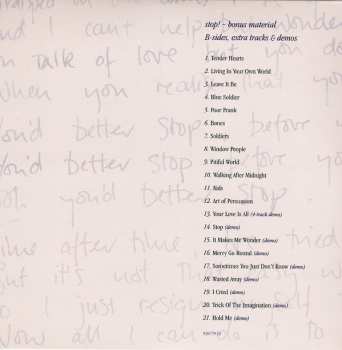 and I can't help wonder
Talk of love but you do
when you realise that
You'd better stop before you
You'd better stop before you
you'd better stop.
time after time tried
but it's not
I just resign self
Now all I can do is to
stop! - bonus material
B-sides, extra tracks & demos
1. Tender Hearts
2. Living In Your Own World
3. Leave It Be
4. Blue Soldier
5. Poor Frank
6. Bones
7. Soldiers
8. Window People
9. Pitiful World
10. Walking After Midnight
11. Kids
12. Art of Persuasion
13. Your Love Is All (4-track demo)
14. Stop (demo)
15. It Makes Me Wonder (demo)
16. Merry Go Round (demo)
17. Sometimes You Just Don't Know (demo)
18. Wasted Away (demo)
19. I Cried (demo)
20. Trick Of The Imagination (demo)
21. Hold Me (demo)